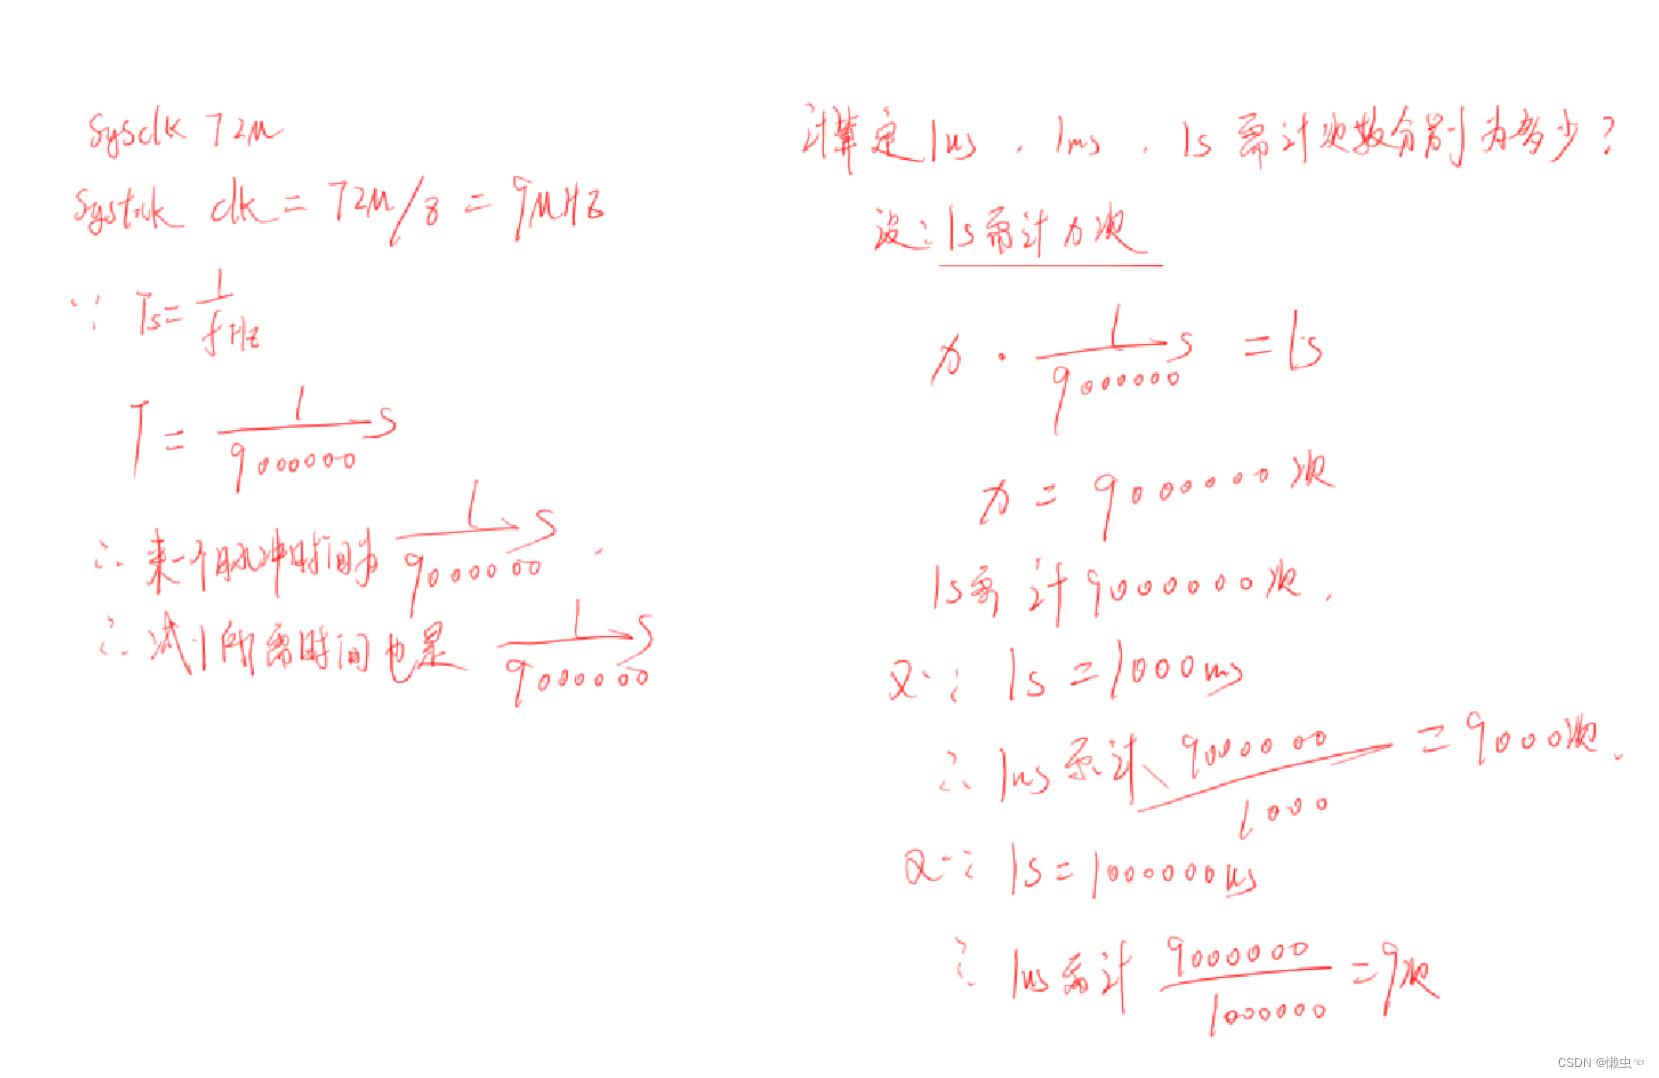 Sysclk 72M
Systick clk = 72M/8 = 9MHz
∵ Ts = 1/fHz
T = 1/9000000 s
∴ 来一个脉冲时间为 1/9000000 s.
∴ 减1所需时间也是 1/9000000 s
计算定1us、1ms、1s需计次数分别为多少?
设:1s需计x次
x · 1/9000000 s = 1s
x = 9000000次
1s需计9000000次.
又∵ 1s = 1000ms
∴ 1ms需计 9000000/1000 = 9000次.
又∵ 1s = 1000000us
∴ 1us需计 9000000/1000000 = 9次
CSDN @懒虫